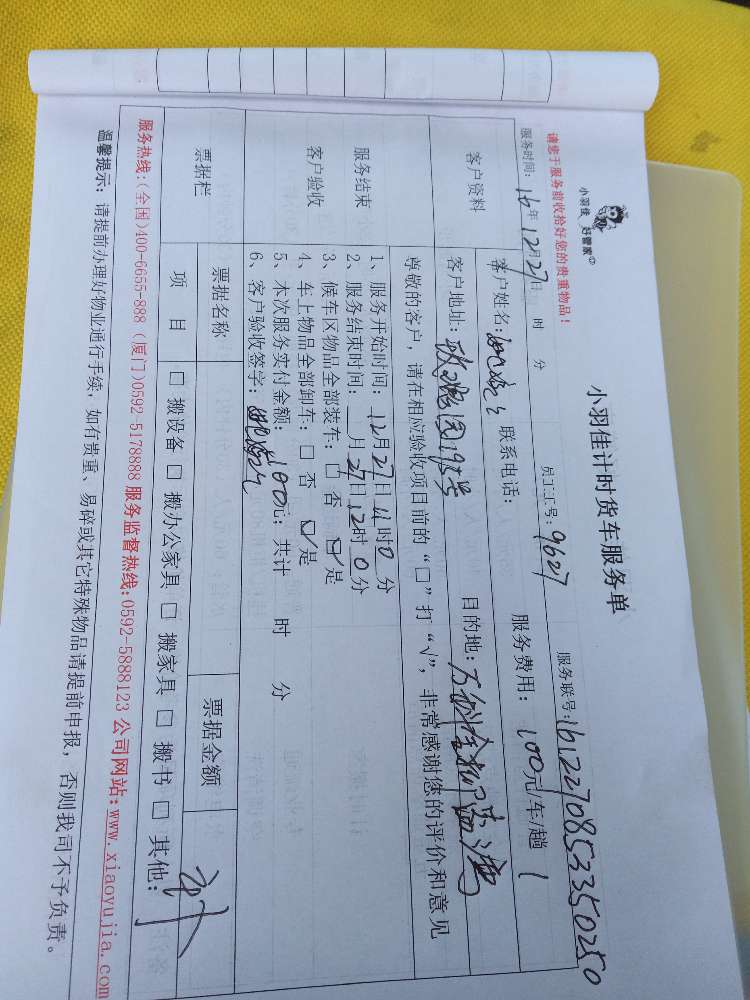 小羽佳 好管家
小羽佳计时货车服务单
请您于服务前收拾好您的贵重物品！
服务时间：16年12月27日 时 分 员工工号：9627 服务联号：1612270853350250
客户资料
客户姓名： 联系电话： 服务费用：100元/车/趟 1
客户地址： 目的地：
尊敬的客户，请在相应验收项目前的“□”打“√”，非常感谢您的评价和意见
服务结束
客户验收
1、服务开始时间：12月27日11时0分
2、服务结束时间： 月27日12时0分
3、候车区物品全部装车：□ 否 ☑是
4、车上物品全部卸车：□ 否 ☑是
5、本次服务实付金额：100元；共计 时 分
6、客户验收签字：
票据栏
票据名称 票据金额
项 目 □ 搬设备 □ 搬办公家具 □ 搬家具 □ 搬书 □ 其他：
服务热线：(全国)400-6655-888 (厦门)0592-5178888 服务监督热线：0592-5888123 公司网站：www.xiaoyujia.com
温馨提示：请提前办理好物业通行手续，如有贵重、易碎或其它特殊物品请提前申报，否则我司不予负责。